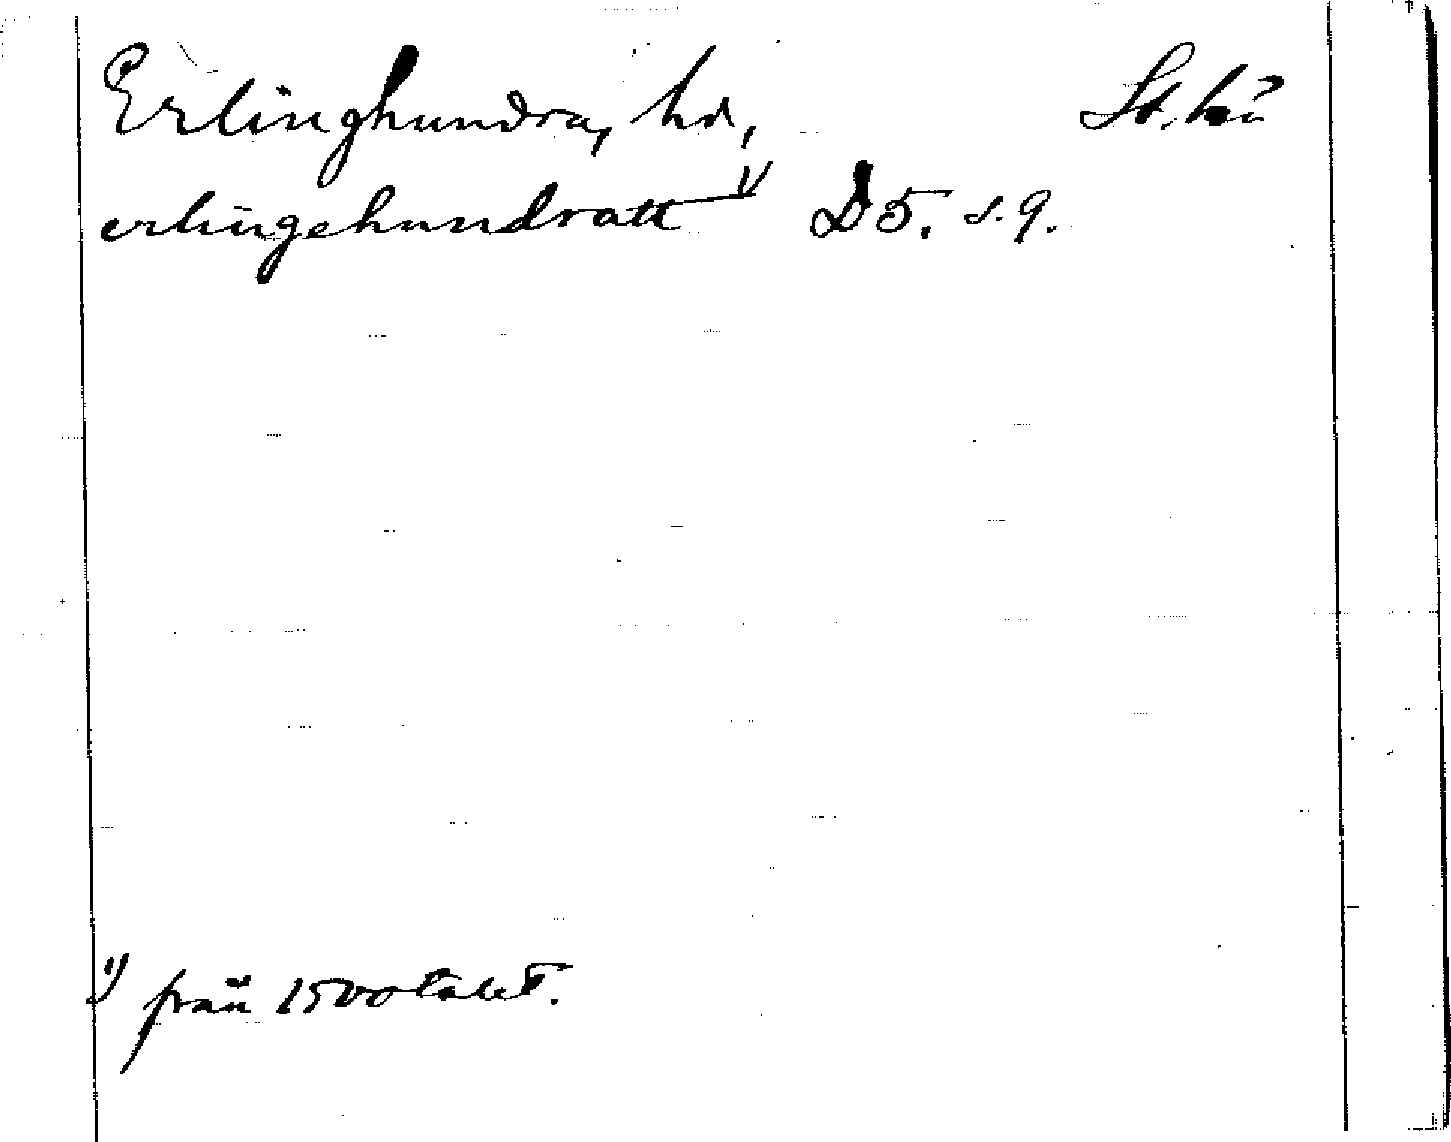 Erlinghundra, hd, St. län
erlingehundratt 1) D 5. s. 9.
1) från 1500 talet.